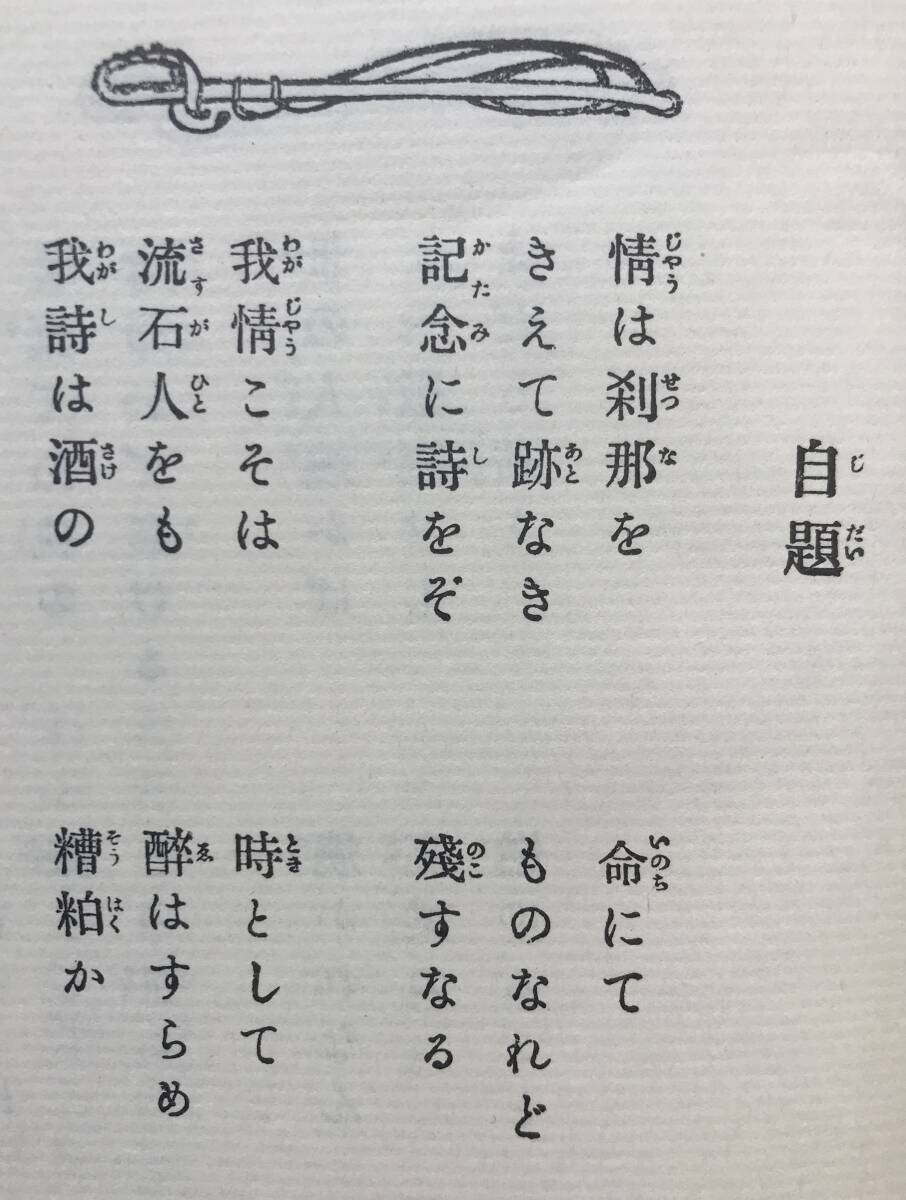 自題
情は刹那を　命にて
きえて跡なき　ものなれど
記念に詩をぞ　殘すなる
我情こそは　時として
流石人をも　醉はすらめ
我詩は酒の　糟粕か